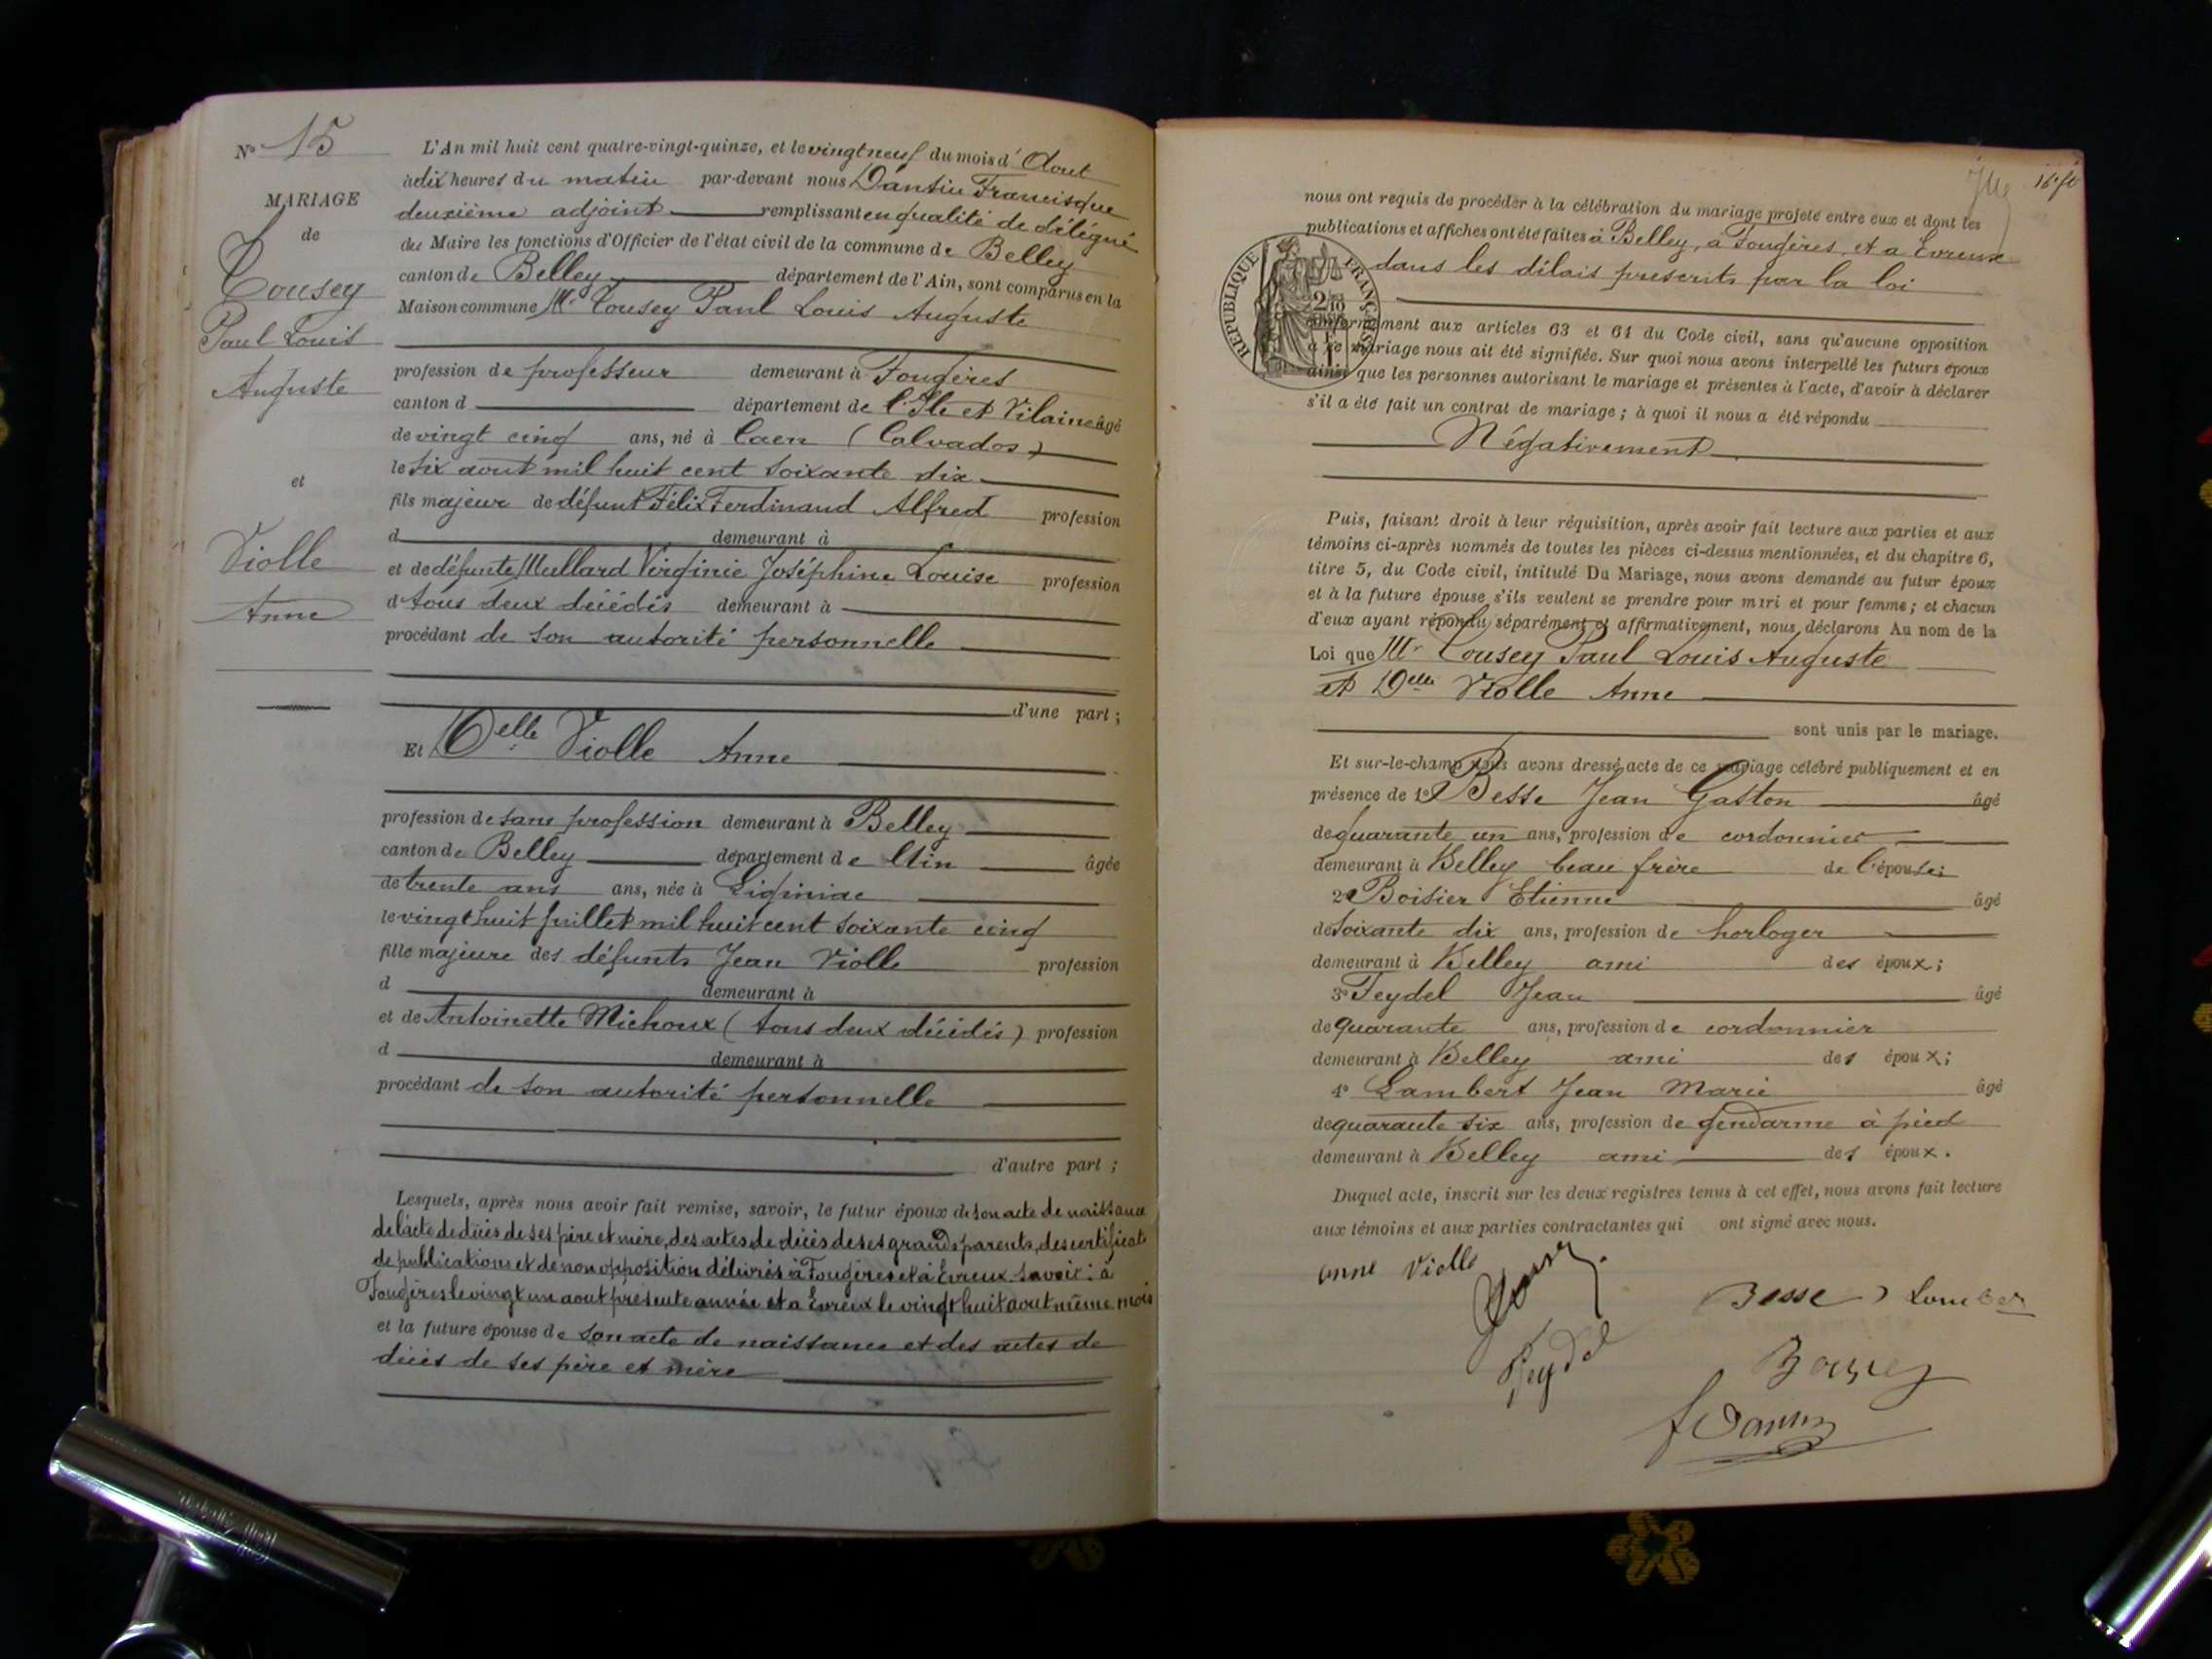 N° 15
MARIAGE
de
Cousey
Paul Louis
Auguste
et
Violle
Anne
L'An mil huit cent quatre-vingt-quinze, et le vingt neuf du mois d'Aout
à dix heures du matin par-devant nous Dantin Francisque
deuxième adjoint remplissant en qualité de délégué
du Maire les fonctions d'Officier de l'état civil de la commune de Belley
canton de Belley département de l'Ain, sont comparus en la
Maison commune Mr Cousey Paul Louis Auguste
profession de professeur demeurant à Fougères
canton d département de l'Ile et Vilaine âgé
de vingt cinq ans, né à Caen (Calvados)
le six aout mil huit cent soixante dix
fils majeur de défunt Félix Ferdinand Alfred profession
d demeurant à
et de défunte Mullard Virginie Joséphine Louise profession
d tous deux décédés demeurant à
procédant de son autorité personnelle
d'une part ;
Et Delle Violle Anne
profession de sans profession demeurant à Belley
canton de Belley département de l'Ain âgée
de trente ans ans, née à Liginiac
le vingt huit juillet mil huit cent soixante cinq
fille majeure des défunts Jean Violle profession
d demeurant à
et de Antoinette Michoux (tous deux décédés) profession
d demeurant à
procédant de son autorité personnelle
d'autre part ;
Lesquels, après nous avoir fait remise, savoir, le futur époux de son acte de naissance
de l'acte de décès de ses père et mère, des actes de décès de ses grands parents, des certificats
de publications et de non opposition délivrés à Fougères et à Evreux savoir : à
Fougères le vingt un aout présente année et a Evreux le vingt huit aout même mois
et la future épouse de son acte de naissance et des actes de
décès de ses père et mère
16e ft
nous ont requis de procéder à la célébration du mariage projeté entre eux et dont les
publications et affiches ont été faites à Belley, à Fougères, et a Evreux
dans les délais prescrits par la loi
RÉPUBLIQUE FRANÇAISE
conformément aux articles 63 et 64 du Code civil, sans qu'aucune opposition
à ce mariage nous ait été signifiée. Sur quoi nous avons interpellé les futurs époux
ainsi que les personnes autorisant le mariage et présentes à l'acte, d'avoir à déclarer
s'il a été fait un contrat de mariage ; à quoi il nous a été répondu
Négativement
Puis, faisant droit à leur réquisition, après avoir fait lecture aux parties et aux
témoins ci-après nommés de toutes les pièces ci-dessus mentionnées, et du chapitre 6,
titre 5, du Code civil, intitulé Du Mariage, nous avons demandé au futur époux
et à la future épouse s'ils veulent se prendre pour mari et pour femme ; et chacun
d'eux ayant répondu séparément et affirmativement, nous déclarons Au nom de la
Loi que Mr Cousey Paul Louis Auguste
et Delle Violle Anne
sont unis par le mariage.
Et sur-le-champ nous avons dressé acte de ce mariage célébré publiquement et en
présence de 1° Besse Jean Gaston âgé
de quarante un ans, profession de cordonnier
demeurant à Belley beau frère de l'épouse ;
2° Boisier Etienne âgé
de soixante dix ans, profession de horloger
demeurant à Belley ami des époux ;
3° Feydel Jean âgé
de quarante ans, profession de cordonnier
demeurant à Belley ami des époux ;
4° Lambert Jean Marie âgé
de quarante six ans, profession de gendarme à pied
demeurant à Belley ami des époux.
Duquel acte, inscrit sur les deux registres tenus à cet effet, nous avons fait lecture
aux témoins et aux parties contractantes qui ont signé avec nous.
Anne Violle
Besse
Feydel